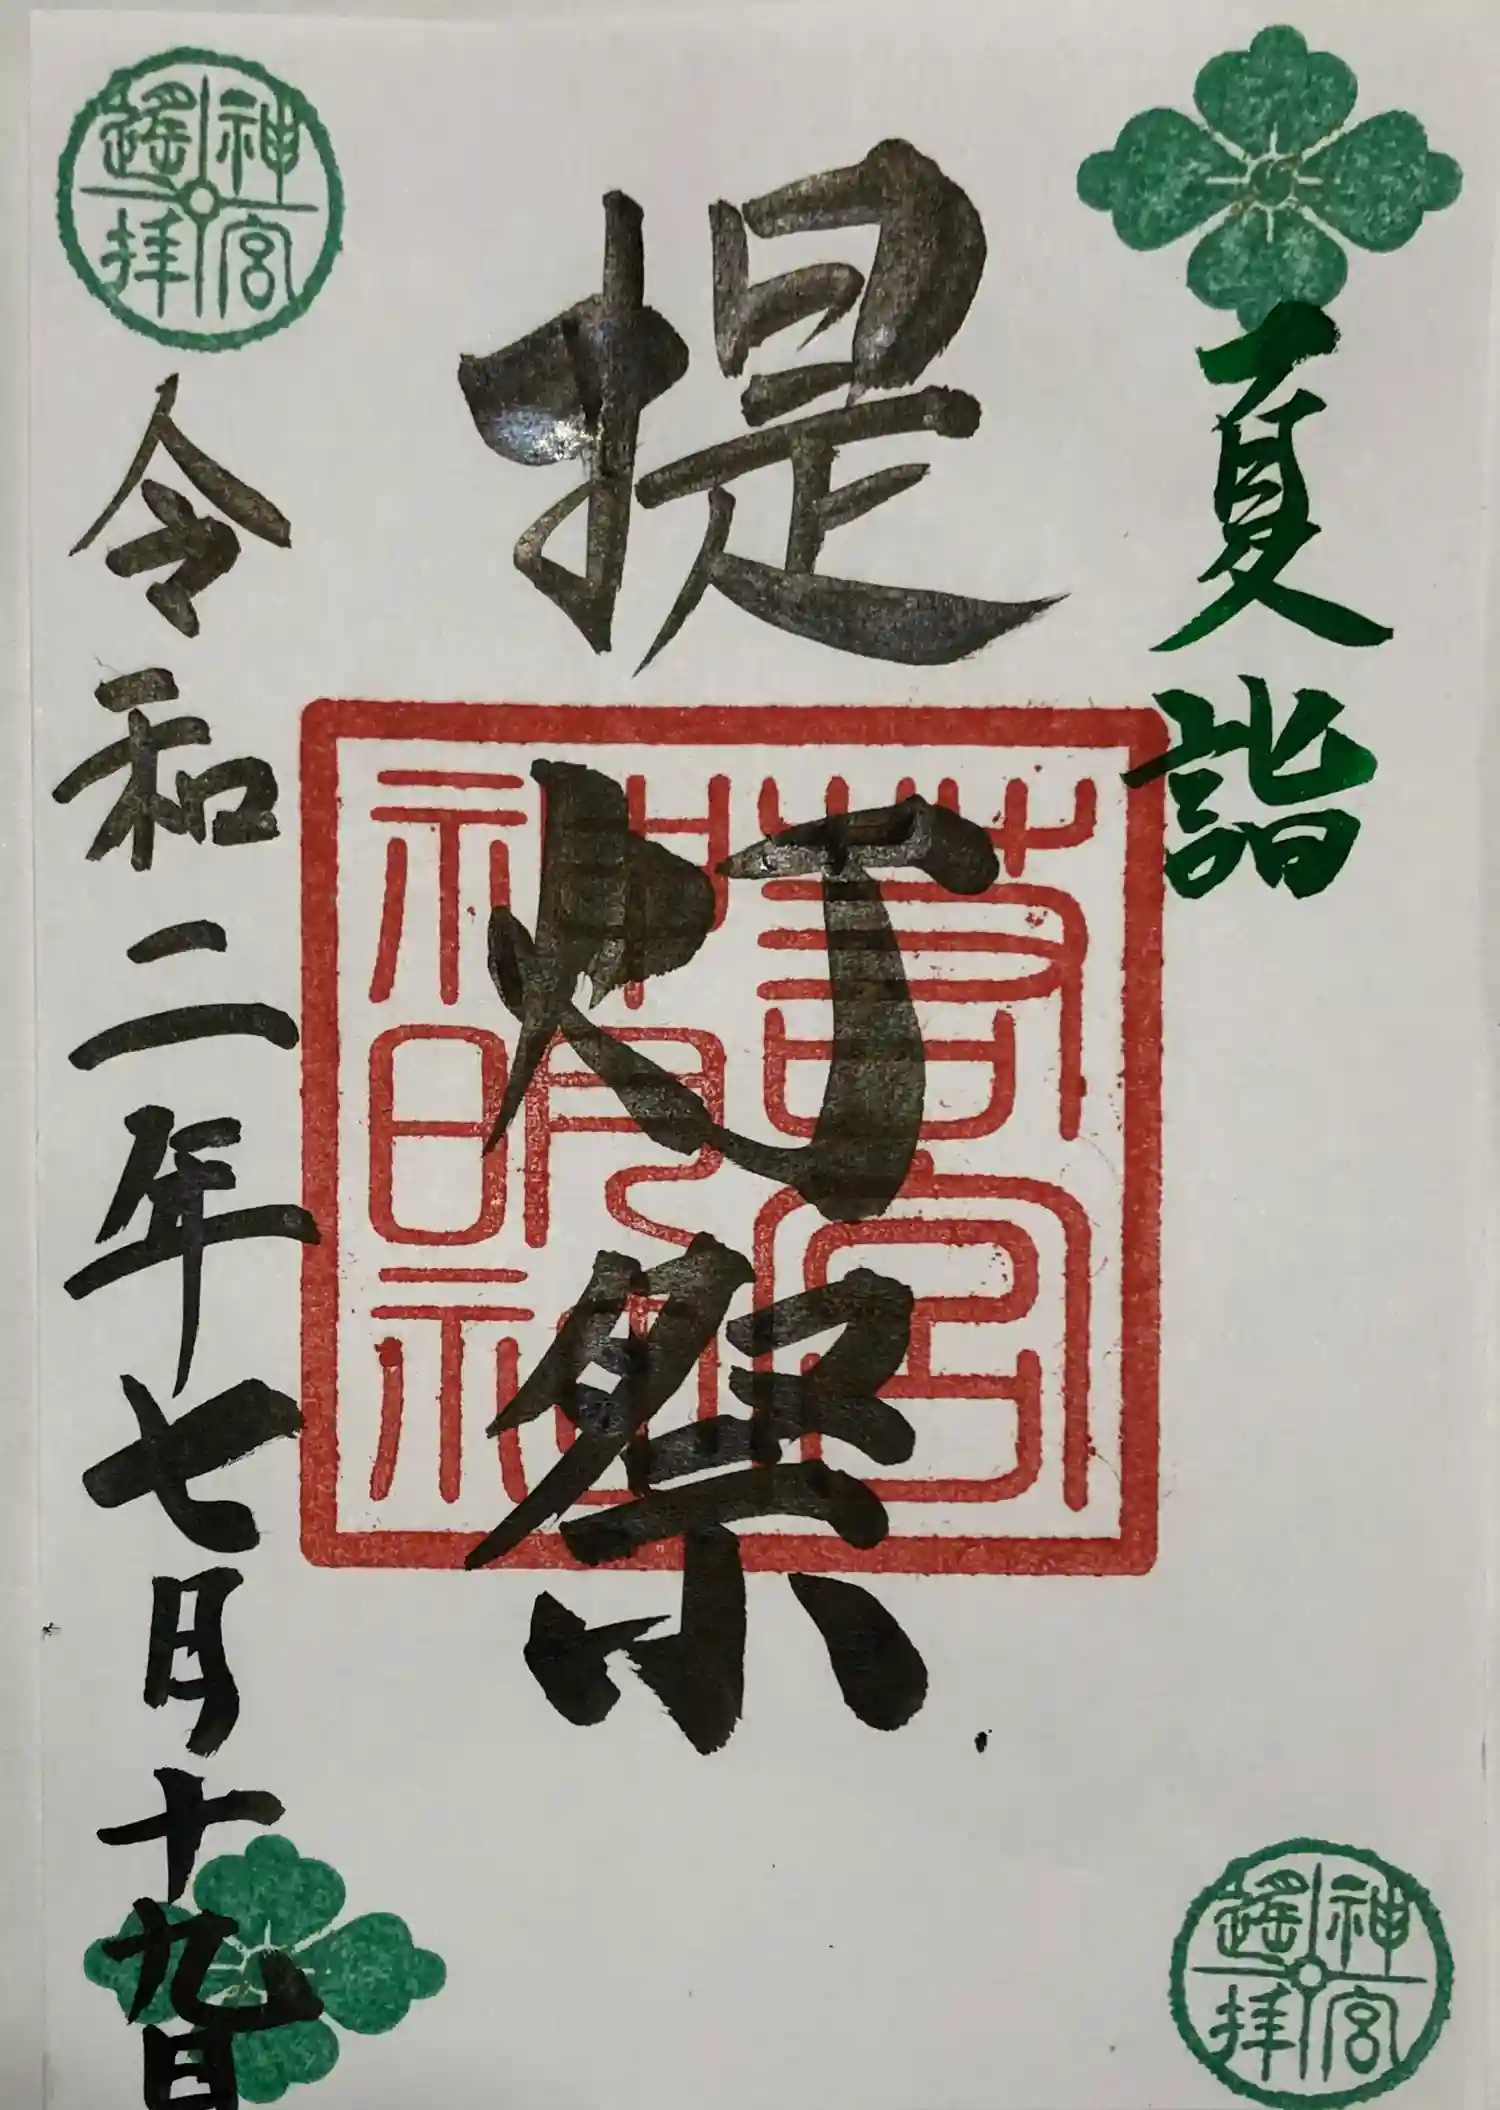 夏詣
提灯祭
茜宮神明社
令和二年七月十九日
神宮遥拝
神宮遥拝